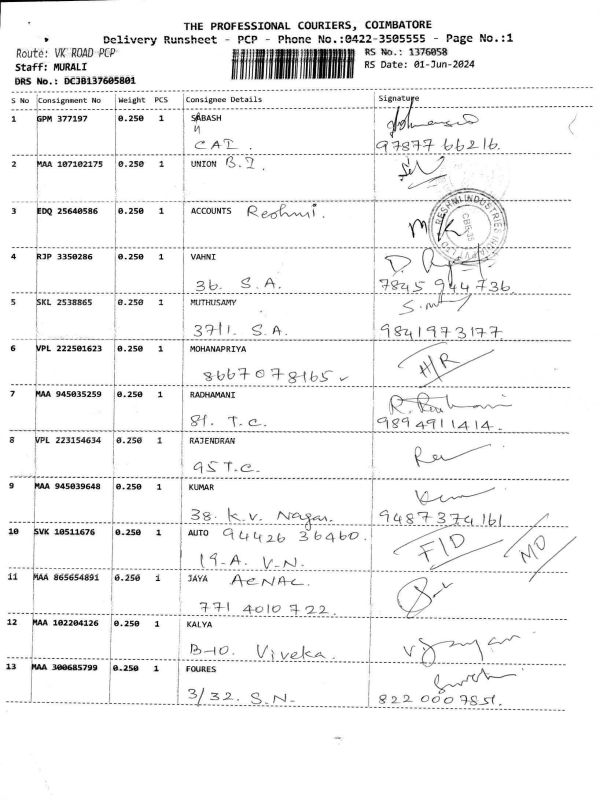 THE PROFESSIONAL COURIERS, COIMBATORE
Delivery Runsheet - PCP - Phone No.:0422-3505555 - Page No.:1
Route: VK ROAD PCP
RS No.: 1376058
Staff: MURALI
RS Date: 01-Jun-2024
DRS No.: DCJB137605801
S No Consignment No Weight PCS Consignee Details Signature
1 GPM 377197 0.250 1 SABASH
CAI. 97877 66216.
2 MAA 107102175 0.250 1 UNION B.I.
3 EDQ 25640586 0.250 1 ACCOUNTS Reshmi. MK
RESHMI INDUSTRIES
4 RJP 3350286 0.250 1 VAHNI
36. S.A. 7845 944 736.
5 SKL 2538865 0.250 1 MUTHUSAMY
37/1. S.A. 9841973177.
6 VPL 222501623 0.250 1 MOHANAPRIYA H/R
8667078165
7 MAA 945035259 0.250 1 RADHAMANI
81. T.C. 9894911414.
8 VPL 223154634 0.250 1 RAJENDRAN
95 T.C.
9 MAA 945039648 0.250 1 KUMAR
38. K.V. Nagar. 9487374161
10 SVK 10511676 0.250 1 AUTO 94426 36460. F/D MO
19-A. V-N.
11 MAA 865654891 0.250 1 JAYA ACNAC.
771 4010 722.
12 MAA 102204126 0.250 1 KALYA
B-10. Viveka.
13 MAA 300685799 0.250 1 FOURES
3/32. S.N. 822 0007851.